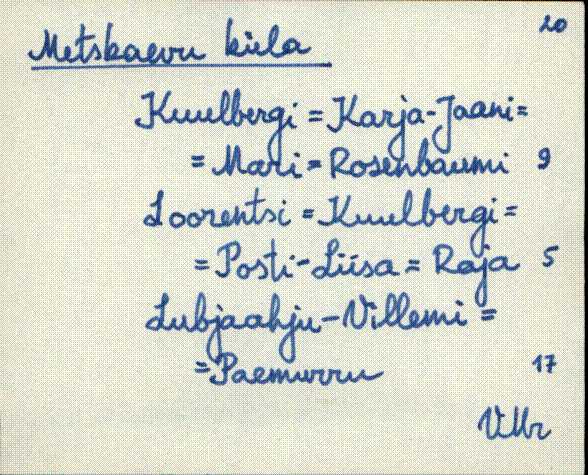 20
Metskaevu küla
Kuulbergi = Karja-Jaani =
= Mari = Rosenbaumi 9
Loorentsi = Kuulbergi =
= Posti-Liisa = Raja 5
Lubjaahju-Villemi =
= Paemurru 17
VMr